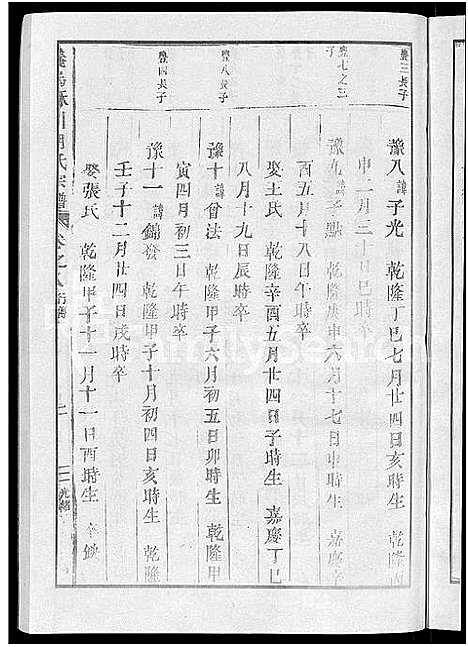 豫八諱子光 乾隆丁巳七月廿四日亥時生 乾隆丙
申二月三十日巳時卒
豫九諱子點 乾隆庚申六月十七日申時生 嘉慶辛
酉五月十八日子時卒
娶王氏 乾隆辛酉五月廿四日子時生 嘉慶丁巳
八月十九日辰時卒
豫十諱曾法 乾隆甲子六月初五日卯時生 乾隆甲
寅四月初三日午時卒
豫十一諱錦發 乾隆甲子十月初四日亥時生 乾隆
壬子十二月廿四日戌時卒
娶張氏 乾隆甲子十一月十一日酉時生 卒缺
豐三長子
豐七之三子
豐八長子
豐四長子
氏宗譜 卷之八
二
光緒
FamilySearch